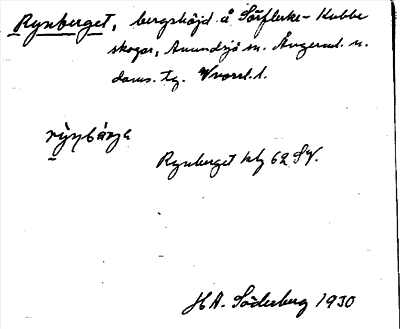 Rynberget, bergshöjd å Sörflerke-Kubbe
skogar, Anundsjö sn. Ångerml. n.
doms. tg. Vrorrl. l.
Rynberget kbl 62 SV.
H A. Söderberg 1930